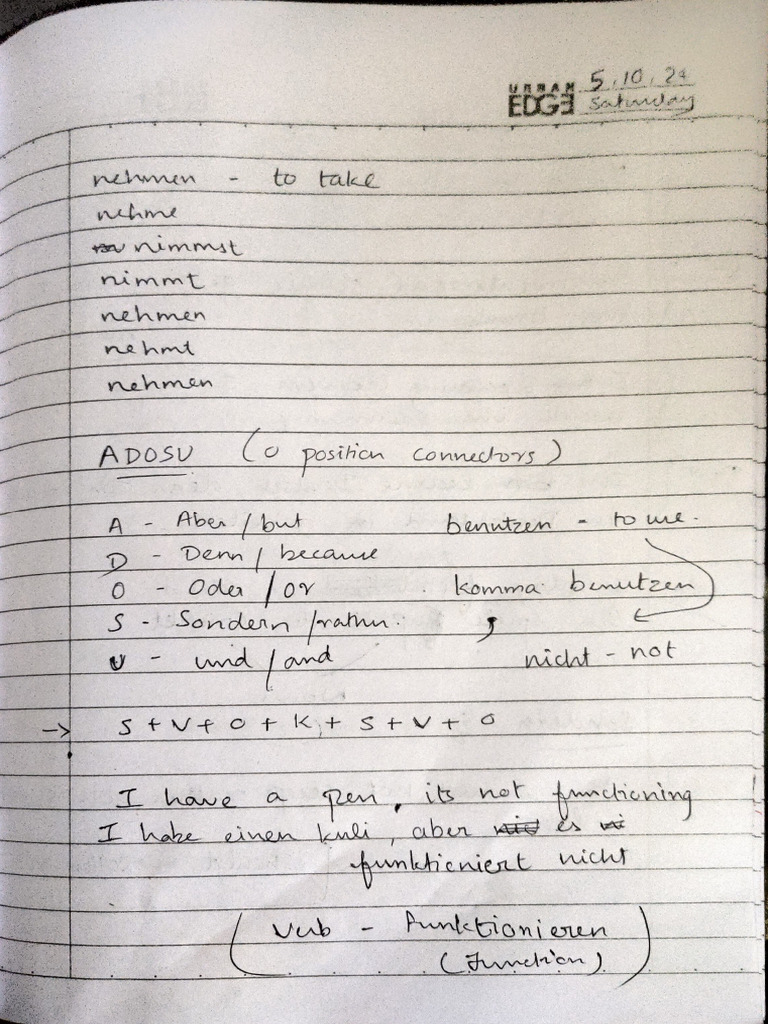 URBAN EDGE 5.10.24
Saturday
nehmen - to take
nehme
nimmst
nimmt
nehmen
nehmt
nehmen
ADOSU (0 position connectors)
A - Aber / but benutzen - to use.
D - Denn / because
O - Oder / or komma benutzen
S - Sondern / rather. ,
U - und / and nicht - not
→ S + V + O + K, + S + V + O
I have a pen, its not functioning
I habe einen kuli, aber es
funktioniert nicht
(Verb - Funktionieren
(Function))